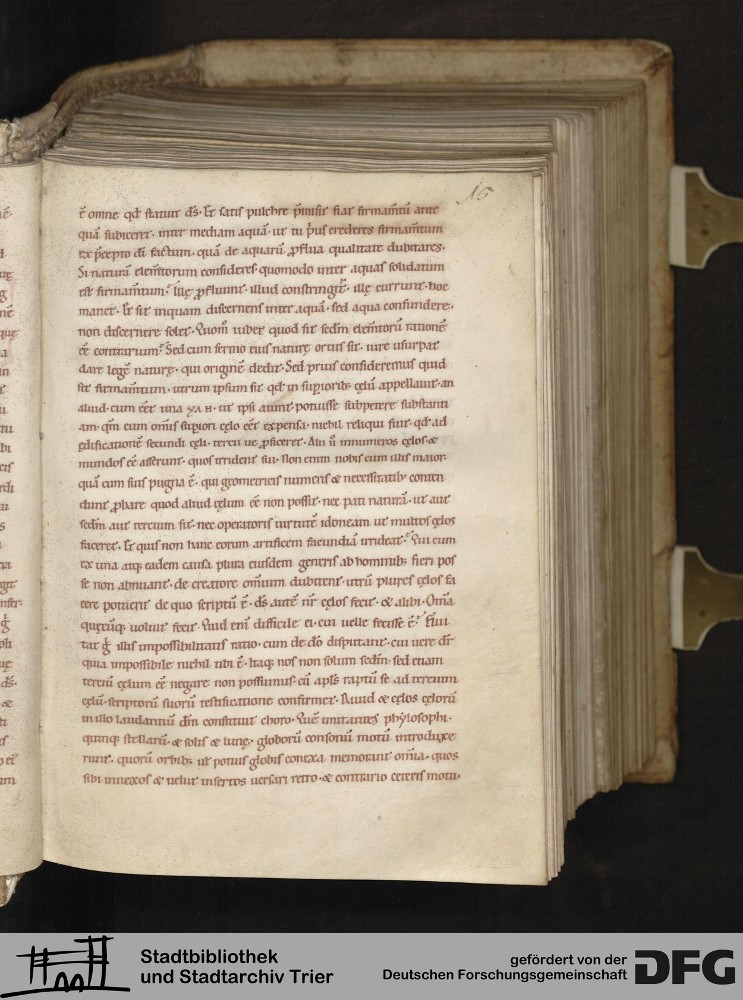 16
ē omne qđ statuit d̄s. Et satis pulchre p̄misit fiat firmam̄tū ante
quā subiceret. inter mediam aquā. ut tu p̓us crederes firmam̄tum
ex p̄cepto dī factum. quā de aquarū ꝓflua qualitate dubitares.
Si naturā elem̄torum consideres. quomodo inter aquas solidatum
est firmam̄tum. Illę ꝓfluunt. illud constringit᷑. illę currunt. hoc
manet. Et sit inquam discernens inter aquā. sed aqua confundere.
non discernere solet. Quom̄ iubet quod sit sedm̄ elem̄torū rationē
eē contrarium. Sed cum sermo eius naturę ortus sit. iure usurpat
dare legē naturę. qui originē dedit. Sed prius consideremus quid
sit firmam̄tum. utrum ipsum sit qđ in supiorib; cęlū appellauit. an
aliud. cum eēt una ΥΛΗ. ut ipsi aiunt. potuisse subpetere substanti
am. qm̄ cum om̄is supiori cęlo eēt expensa. nichil reliqui fuit. qđ ad
ędificationē secundi cęli. tercii ue ꝓficeret. Alii ū innumeros cęlos &
mundos eē asserunt. quos irrident sui. Non enim nobis cum illis maior.
quā cum suis pugna ē. qui geometricis numeris & necessitatib; conten
dunt ꝓbare quod aliud cęlum eē non possit. nec pati naturā. ut aut
sedm̄ aut tercium sit. nec operatoris uirtutē idoneam ut multos cęlos
faceret. Et quis non hanc eorum artificem facundiā irrideat. Qui cum
ex una atq; eadem causa plura eiusdem generis ab hominib; fieri pos
se non abnuant. de creatore om̄ium dubitent. utrū plures cęlos fa
cere potuerit de quo scriptū ē. d̄s autē nr̄ cęlos fecit. & alibi. Om̄a
quęcūq; uoluit fecit. Quid enī difficile ei. cui uelle fecisse ē.
tat g̓ illis impossibilitatis ratio. cum de dō disputant. cui uere dr̄
quia impossibile nichil tibi ē. Itaq; nos non solum sedm̄. sed etiam
terciū cęlum eē negare non possumus. cū apl̄s raptū se ad tercium
cęlū. scriptorū suorū testificatione confirmet. Dauid & cęlos cęlorū
in illo laudantiū dm̄ constituit choro. Quē imitantes phylosophi.
quinq; stellarū. & solis & lunę. globorū consonū motū introduxe
runt. quorū orbib; ut potius globis conexa memorant om̄ia. quos
sibi innexos & uelut insertos uersari retro. & contrario ceteris motu.
Stadtbibliothek
und Stadtarchiv Trier
gefördert von der
Deutschen Forschungsgemeinschaft
DFG